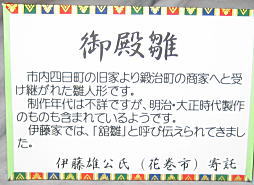 御殿雛
市内四日町の旧家より鍛治町の商家へと受
け継がれた雛人形です。
制作年代は不詳ですが、明治・大正時代製作
のものも含まれているようです。
伊藤家では、「舘雛」と呼び伝えられてきまし
た。
伊藤雄公氏（花巻市）寄託